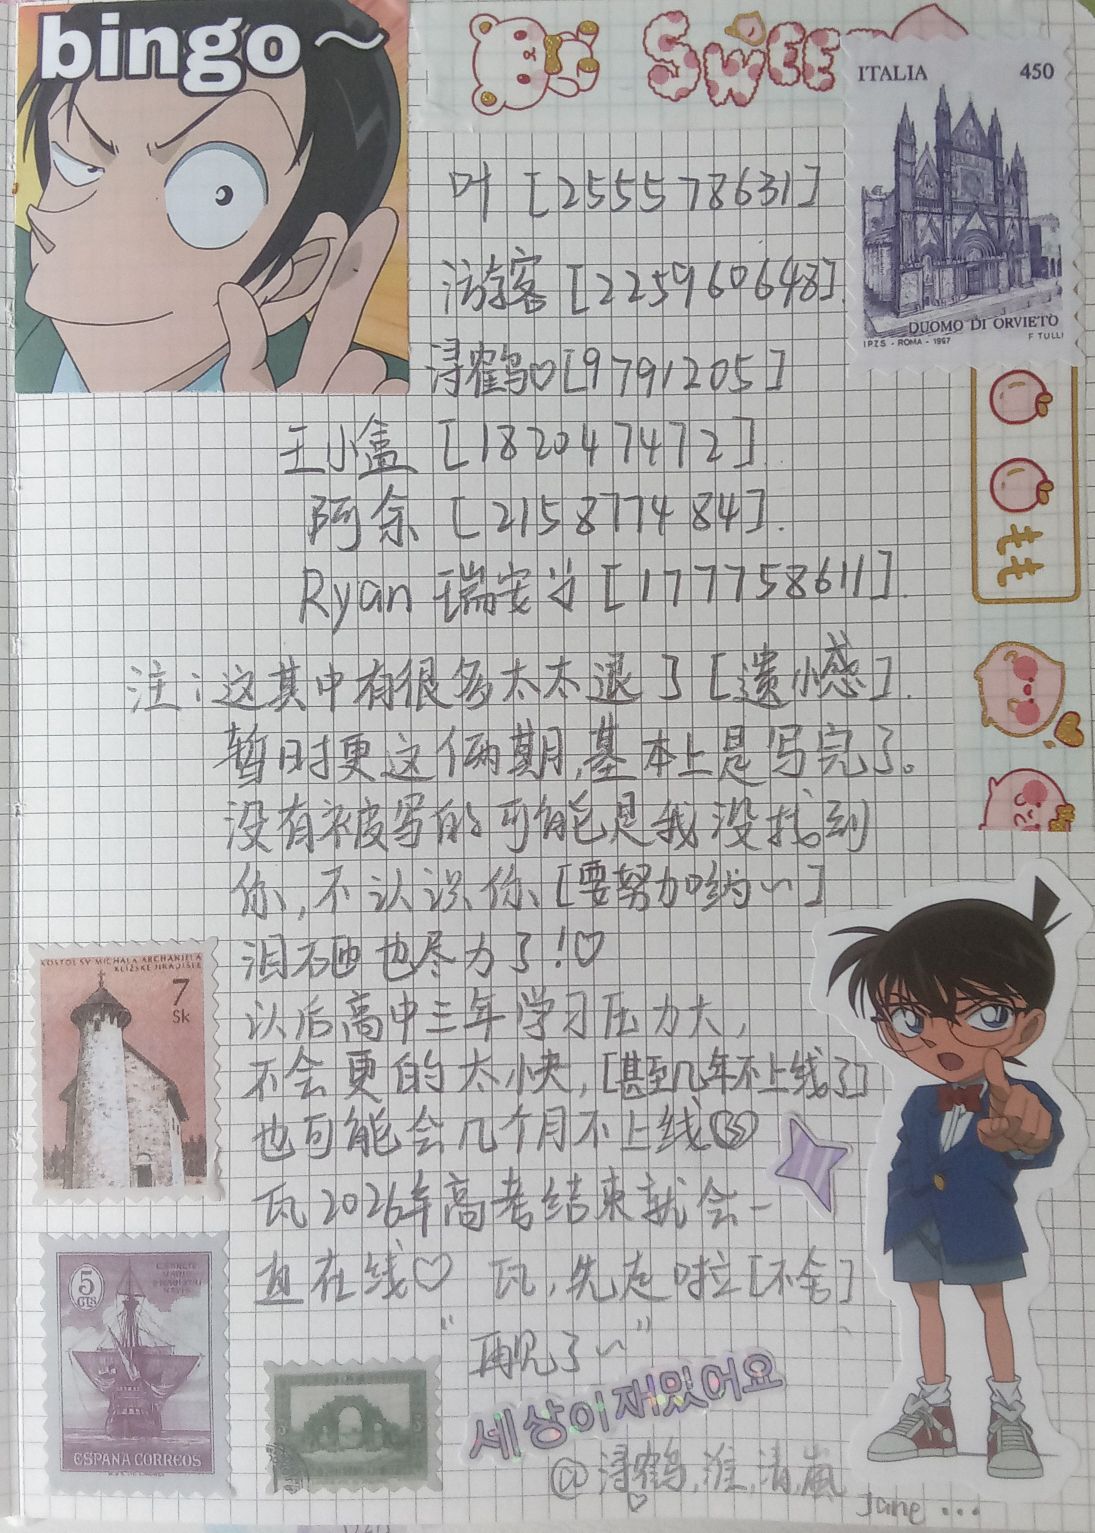 bingo~
SWEE
ITALIA 450
DUOMO DI ORVIETO
I.P.Z.S. - ROMA - 1997 F. TULLI
叶 [255578631]
游客 [225960648].
浔鹤♡[9791205]
王小盒 [1820474472].
阿余 [2158777484].
Ryan 瑞安
[1777758611].
注：这其中有很多太太退了 [遗憾].
暂时更这俩期,基本上是写完了。
没有被写的可能是我没找到
你,不认识你 [要努力哟~]
泪 也尽力了!♡
以后高中三年学习压力大,
不会更的太快,[甚至几年不上线了]
也可能会几个月不上线
瓦2026年高考结束就会一
直在线♡ 瓦,先走啦[不舍]
"再见了~"
세상이 재밌어요
浔鹤,淮,清,岚
Jane ...
KOSTOL SV. MICHALA ARCHANJELA
KLÍŽSKE HRADIŠTE
7
Sk
5
CTS
ESPAÑA CORREOS